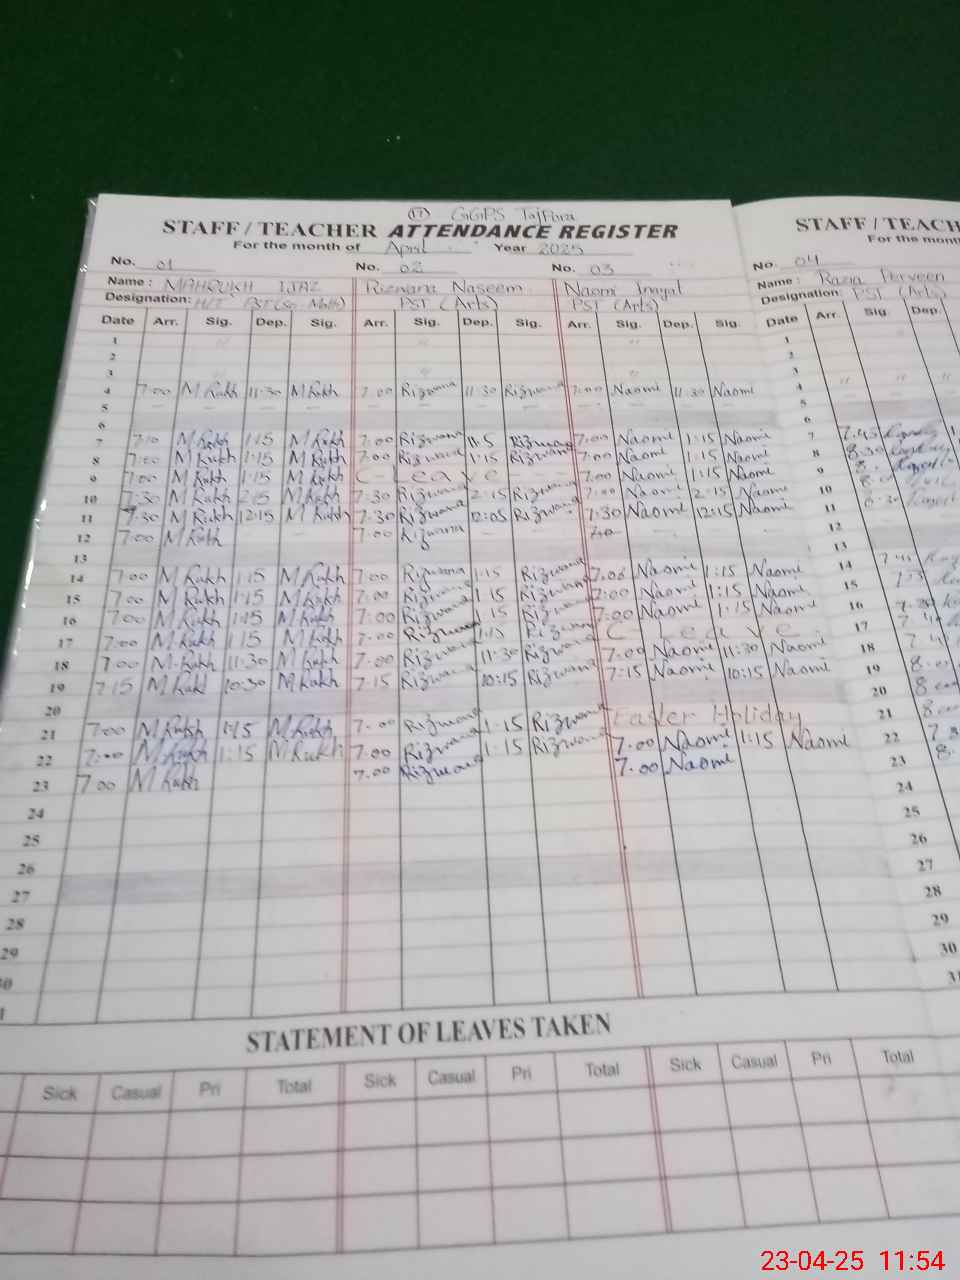 17 GGPS TajPora
STAFF / TEACHER ATTENDANCE REGISTER STAFF / TEACH
For the month of April Year 2025 For the mon
No. 01 No. 02 No. 03 No. 04
Name : MAHRUKH IJAZ Rizwana Naseem Naomi Inayat Name : Razia Perveen
Designation: PST (Sci-Math) PST (Arts) PST (Arts) Designation: PST (Arts)
Date Arr. Sig. Dep. Sig. Arr. Sig. Dep. Sig. Arr. Sig. Dep. Sig. Date Arr. Sig. Dep.
1 1
2 2
3 3
4 7:00 M Rukh 11:30 M Rukh 7:00 Rizwana 11:30 Rizwana 7:00 Naomi 11:30 Naomi 4
5 5
6 6
7 M Rukh 1:15 M Rukh 7:00 Rizwana Rizwana 7:00 Naomi 1:15 Naomi 7 7.45
8 7:00 M Rukh 1:15 M Rukh 7:00 Rizwana 1:15 Rizwana 7:00 Naomi 1:15 Naomi 8 8.30
9 7:00 M Rukh 1:15 M Rukh C - Leave 7:00 Naomi 1:15 Naomi 9
10 7:30 M Rukh 2:15 M Rukh 7:30 Rizwana 2:15 Rizwana 7:00 Naomi 2:15 Naomi 10
11 7:30 M Rukh 12:15 M Rukh 7:30 Rizwana 12:05 Rizwana 7:30 Naomi 12:15 Naomi 11
12 7:00 M Rukh 7:00 Rizwana 12
13 13
14 7:00 M Rukh 1:15 M Rukh 7:00 Rizwana 1:15 Rizwana 7:00 Naomi 1:15 Naomi 14
15 7:00 M Rukh 1:15 M Rukh 7:00 Rizwana 1:15 Rizwana 7:00 Naomi 1:15 Naomi 15
16 7:00 M Rukh 1:15 M Rukh 7:00 Rizwana 1:15 Rizwana 7:00 Naomi 1:15 Naomi 16
17 7:00 M Rukh 1:15 M Rukh 7:00 Rizwana 1:15 Rizwana C - Leave 17
18 7:00 M Rukh 11:30 M Rukh 7:00 Rizwana 11:30 Rizwana 7:00 Naomi 11:30 Naomi 18
19 7:15 M Rukh 10:30 M Rukh 7:15 Rizwana 10:15 Rizwana 7:15 Naomi 10:15 Naomi 19
20 20
21 7:00 M Rukh 1:15 M Rukh 7:00 Rizwana 1:15 Rizwana Easter Holiday 21
22 7:00 M Rukh 1:15 M Rukh 7:00 Rizwana 1:15 Rizwana 7:00 Naomi 1:15 Naomi 22
23 7:00 M Rukh 7.00 Rizwana 7.00 Naomi 23
24 24
25 25
26 26
27 27
28 28
29 29
30
STATEMENT OF LEAVES TAKEN
Sick Casual Pri Total Sick Casual Pri Total Sick Casual Pri Total
23-04-25 11:54